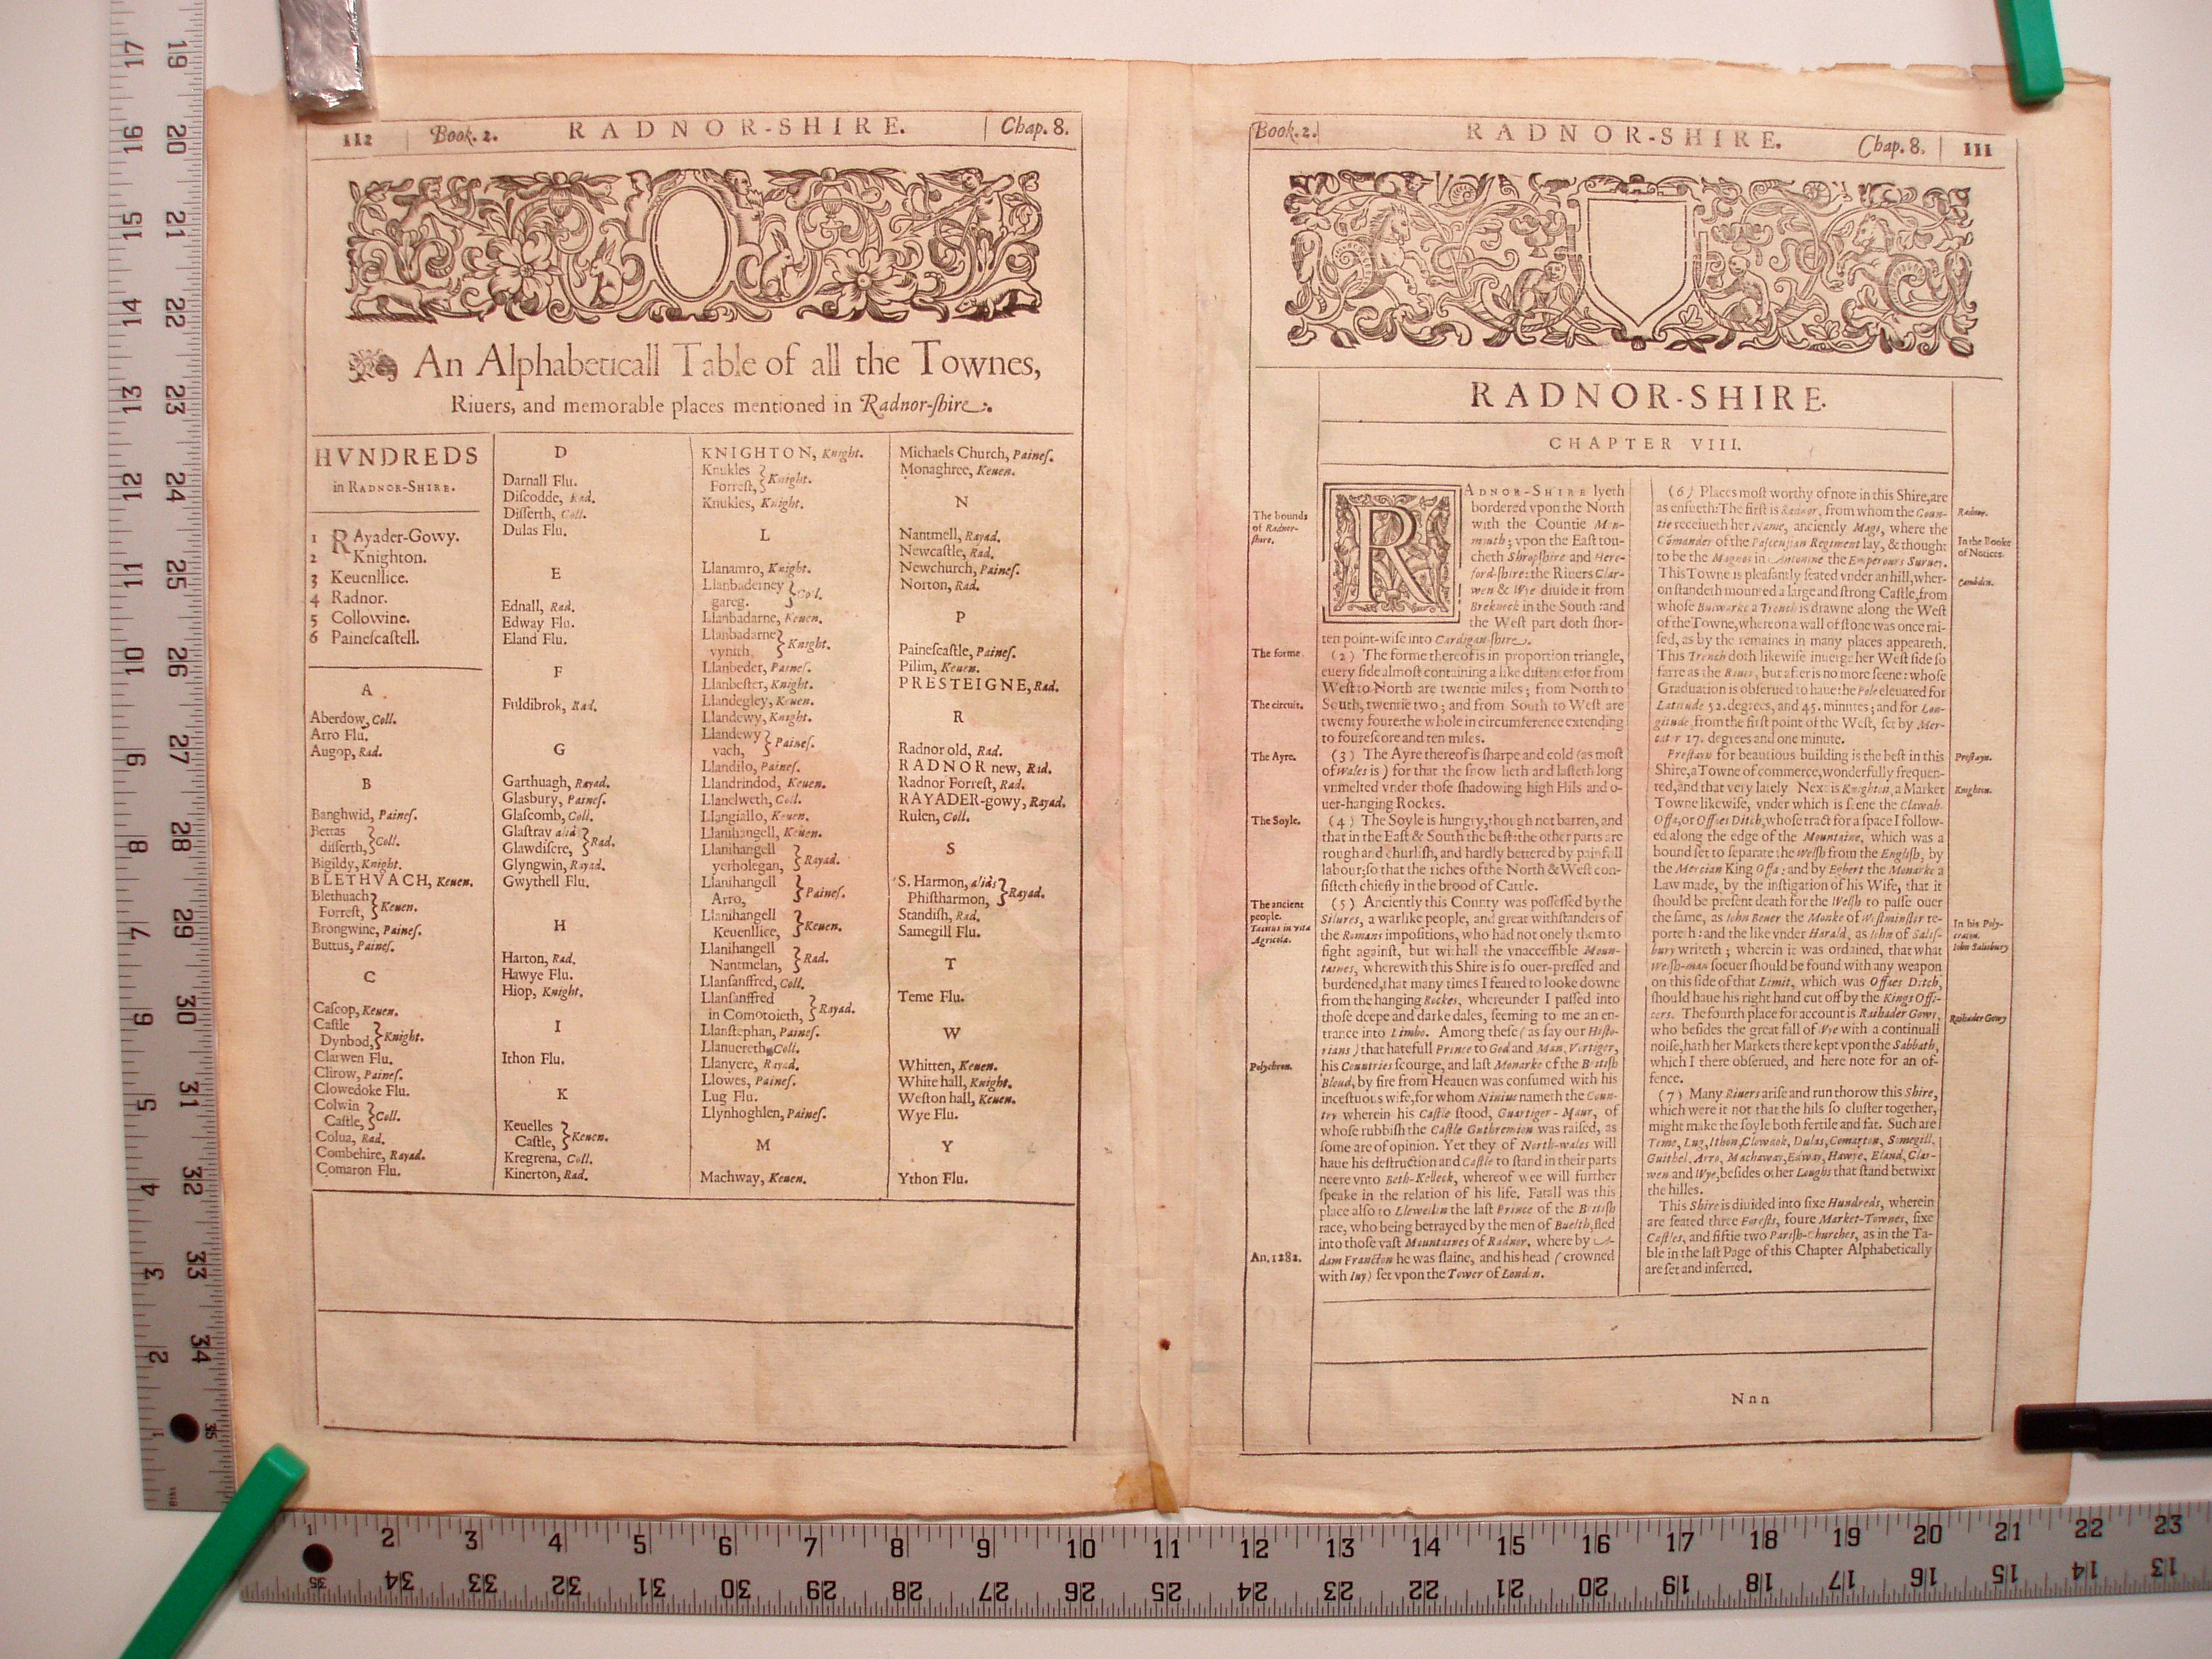 112 Book. 2. RADNOR-SHIRE. Chap. 8.
An Alphabeticall Table of all the Townes,
Riuers, and memorable places mentioned in Radnor-ſhire.
HVNDREDS
in RADNOR-SHIRE.
1 RAyader-Gowy.
2 Knighton.
3 Keuenllice.
4 Radnor.
5 Collowine.
6 Paineſcaſtell.
A
Aberdow, Coll.
Arro Flu.
Augop, Rad.
B
Banghwid, Paineſ.
Bettas
diſſerth, } Coll.
Bigildy, Knight.
BLETHVACH, Keuen.
Blethuach
Forreſt, } Keuen.
Brongwine, Paineſ.
Buttus, Paineſ.
C
Caſcop, Keuen.
Caſtle
Dynbod, } Knight.
Clarwen Flu.
Clirow, Paineſ.
Clowedoke Flu.
Colwin
Caſtle, } Coll.
Colua, Rad.
Combehire, Rayad.
Comaron Flu.
D
Darnall Flu.
Diſcodde, Rad.
Diſſerth, Coll.
Dulas Flu.
E
Ednall, Rad.
Edway Flu.
Eland Flu.
F
Fuldibrok, Rad.
G
Garthuagh, Rayad.
Glasbury, Paineſ.
Glaſcomb, Coll.
Glaſtray aliâ
Glawdiſcre, } Rad.
Glyngwin, Rayad.
Gwythell Flu.
H
Harton, Rad.
Hawye Flu.
Hiop, Knight.
I
Ithon Flu.
K
Keuelles
Caſtle, } Keuen.
Kregrena, Coll.
Kinerton, Rad.
KNIGHTON, Knight.
Knukles
Forreſt, } Knight.
Knukles, Knight.
L
Llanamro, Knight.
Llanbaderney
gareg. } Coll.
Llanbadarne, Keuen.
Llanbadarne
vynith, } Knight.
Llanbeder, Paineſ.
Llanbeſter, Knight.
Llandegley, Keuen.
Llandewy, Knight.
Llandewy
vach, } Paineſ.
Llandilo, Paineſ.
Llandrindod, Keuen.
Llanelweth, Coll.
Llangiallo, Keuen.
Llanihangell, Keuen.
Llanihangell
yerholegan, } Rayad.
Llanihangell
Arro, } Paineſ.
Llanihangell
Keuenllice, } Keuen.
Llanihangell
Nantmelan, } Rad.
Llanſanffred, Coll.
Llanſanffred
in Comotoieth, } Rayad.
Llanſtephan, Paineſ.
Llanuereth, Coll.
Llanyere, Rayad.
Llowes, Paineſ.
Lug Flu.
Llynhoghlen, Paineſ.
M
Machway, Keuen.
Michaels Church, Paineſ.
Monaghree, Keuen.
N
Nantmell, Rayad.
Newcaſtle, Rad.
Newchurch, Paineſ.
Norton, Rad.
P
Paineſcaſtle, Paineſ.
Pilim, Keuen.
PRESTEIGNE, Rad.
R
Radnor old, Rad.
RADNOR new, Rad.
Radnor Forreſt, Rad.
RAYADER-gowy, Rayad.
Rulen, Coll.
S
S. Harmon, aliâs
Phiſtharmon, } Rayad.
Standiſh, Rad.
Samegill Flu.
T
Teme Flu.
W
Whitten, Keuen.
White hall, Knight.
Weſton hall, Keuen.
Wye Flu.
Y
Ython Flu.
Book. 2. RADNOR-SHIRE. Chap. 8. 111
RADNOR-SHIRE.
CHAPTER VIII.
The bounds
of Radnor-
ſhire.
RADNOR-SHIRE lyeth
bordered vpon the North
with the Countie Mon-
mouth; vpon the Eaſt tou-
cheth Shropſhire and Here-
ford-ſhire: the Riuers Clar-
wen & Wye diuide it from
Breknock in the South: and
the Weſt part doth ſhor-
ten point-wiſe into Cardigan-ſhire.
The forme.
(2) The forme thereof is in proportion triangle,
euery ſide almoſt containing a like diſtance: for from
Weſt to North are twentie miles; from North to
The circuit.
South, twentie two; and from South to Weſt are
twenty foure: the whole in circumference extending
to foureſcore and ten miles.
The Ayre.
(3) The Ayre thereof is ſharpe and cold (as moſt
of Wales is) for that the ſnow lieth and laſteth long
vnmelted vnder thoſe ſhadowing high Hils and o-
uer-hanging Rockes.
The Soyle.
(4) The Soyle is hungry, though not barren, and
that in the Eaſt & South the beſt: the other parts are
rough and churliſh, and hardly bettered by painfull
labour; ſo that the riches of the North & Weſt con-
ſiſteth chiefly in the brood of Cattle.
The ancient
people.
Tacitus in vita
Agricola.
(5) Anciently this County was poſſeſſed by the
Silures, a warlike people, and great withſtanders of
the Romans impoſitions, who had not onely them to
fight againſt, but withall the vnacceſſible Moun-
taines, wherewith this Shire is ſo ouer-preſſed and
burdened, that many times I feared to looke downe
from the hanging Rockes, whereunder I paſſed into
thoſe deepe and darke dales, ſeeming to me an en-
trance into Limbo. Among theſe (as ſay our Hiſto-
rians) that hatefull Prince to God and Man, Vortiger,
Polychron.
his Countries ſcourge, and laſt Monarke of the Britiſh
Bloud, by fire from Heauen was conſumed with his
inceſtuous wife, for whom Ninius nameth the Coun-
try wherein his Caſtle ſtood, Guartiger-Maur, of
whoſe rubbiſh the Caſtle Guthremion was raiſed, as
ſome are of opinion. Yet they of North-wales will
haue his deſtruction and Caſtle to ſtand in their parts
neere vnto Beth-Kelleck, whereof wee will further
ſpeake in the relation of his life. Fatall was this
place alſo to Llewellin the laſt Prince of the Britiſh
race, who being betrayed by the men of Buelth, fled
into thoſe vaſt Mountaines of Radnor, where by A-
An. 1282.
dam Francton he was ſlaine, and his head (crowned
with Iuy) ſet vpon the Tower of London.
(6) Places moſt worthy of note in this Shire, are
as enſueth: The firſt is Radnor, from whom the Coun-
Radnor.
tie receiueth her Name, anciently Magi, where the
Cōmander of the Paſcenſian Regiment lay, & thought
In the Booke
of Notices.
to be the Magnos in Antonine the Emperours Suruey.
This Towne is pleaſantly ſeated vnder an hill, wher-
Cambden.
on ſtandeth mounted a large and ſtrong Caſtle, from
whoſe Bulwarke a Trench is drawne along the Weſt
of the Towne, whereon a wall of ſtone was once rai-
ſed, as by the remaines in many places appeareth.
This Trench doth likewiſe inuerge her Weſt ſide ſo
farre as the Riuer, but after is no more ſeene: whoſe
Graduation is obſerued to haue the Pole eleuated for
Latitude 52. degrees, and 45. minutes; and for Lon-
gitude, from the firſt point of the Weſt, ſet by Mer-
cator 17. degrees and one minute.
Preſtayn for beautious building is the beſt in this
Preſtayn.
Shire, a Towne of commerce, wonderfully frequen-
ted, and that very lately Next is Knighton, a Market
Knighton.
Towne likewiſe, vnder which is ſeene the Clawdh-
Offa, or Offaes Ditch, whoſe tract for a ſpace I follow-
ed along the edge of the Mountaine, which was a
bound ſet to ſeparate the Welſh from the Engliſh, by
the Mercian King Offa: and by Egbert the Monarke a
Law made, by the inſtigation of his Wife, that it
ſhould be preſent death for the Welſh to paſſe ouer
the ſame, as Iohn Beuer the Monke of Weſtminſter re-
In his Poly-
craton.
porteth: and the like vnder Harald, as Iohn of Saliſ-
Iohn Salisbury
bury writeth; wherein it was ordained, that what
Welſh-man ſoeuer ſhould be found with any weapon
on this ſide of that Limit, which was Offaes Ditch,
ſhould haue his right hand cut off by the Kings Offi-
cers. The fourth place for account is Raihader Gowy,
Raihader Gowy
who beſides the great fall of Wye with a continuall
noiſe, hath her Markets there kept vpon the Sabbath,
which I there obſerued, and here note for an of-
fence.
(7) Many Riuers ariſe and run thorow this Shire,
which were it not that the hils ſo cluſter together,
might make the ſoyle both fertile and fat. Such are
Teme, Lug, Ithon, Clowdok, Dulas, Comarton, Somegill,
Guithel, Arro, Machaway, Edway, Hawye, Eland, Clar-
wen and Wye, beſides other Loughs that ſtand betwixt
the hilles.
This Shire is diuided into ſixe Hundreds, wherein
are ſeated three Foreſts, foure Market-Townes, ſixe
Caſtles, and fiftie two Pariſh-Churches, as in the Ta-
ble in the laſt Page of this Chapter Alphabetically
are ſet and inſerted.
Nnn
17 16 15 14 13 12 11 10 9 8 7 6 5 4 3 2 1
19 20 21 22 23 24 25 26 27 28 29 30 31 32 33 34 35
1 2 3 4 5 6 7 8 9 10 11 12 13 14 15 16 17 18 19 20 21 22 23
35 34 33 32 31 30 29 28 27 26 25 24 23 22 21 20 19 18 17 16 15 14 13